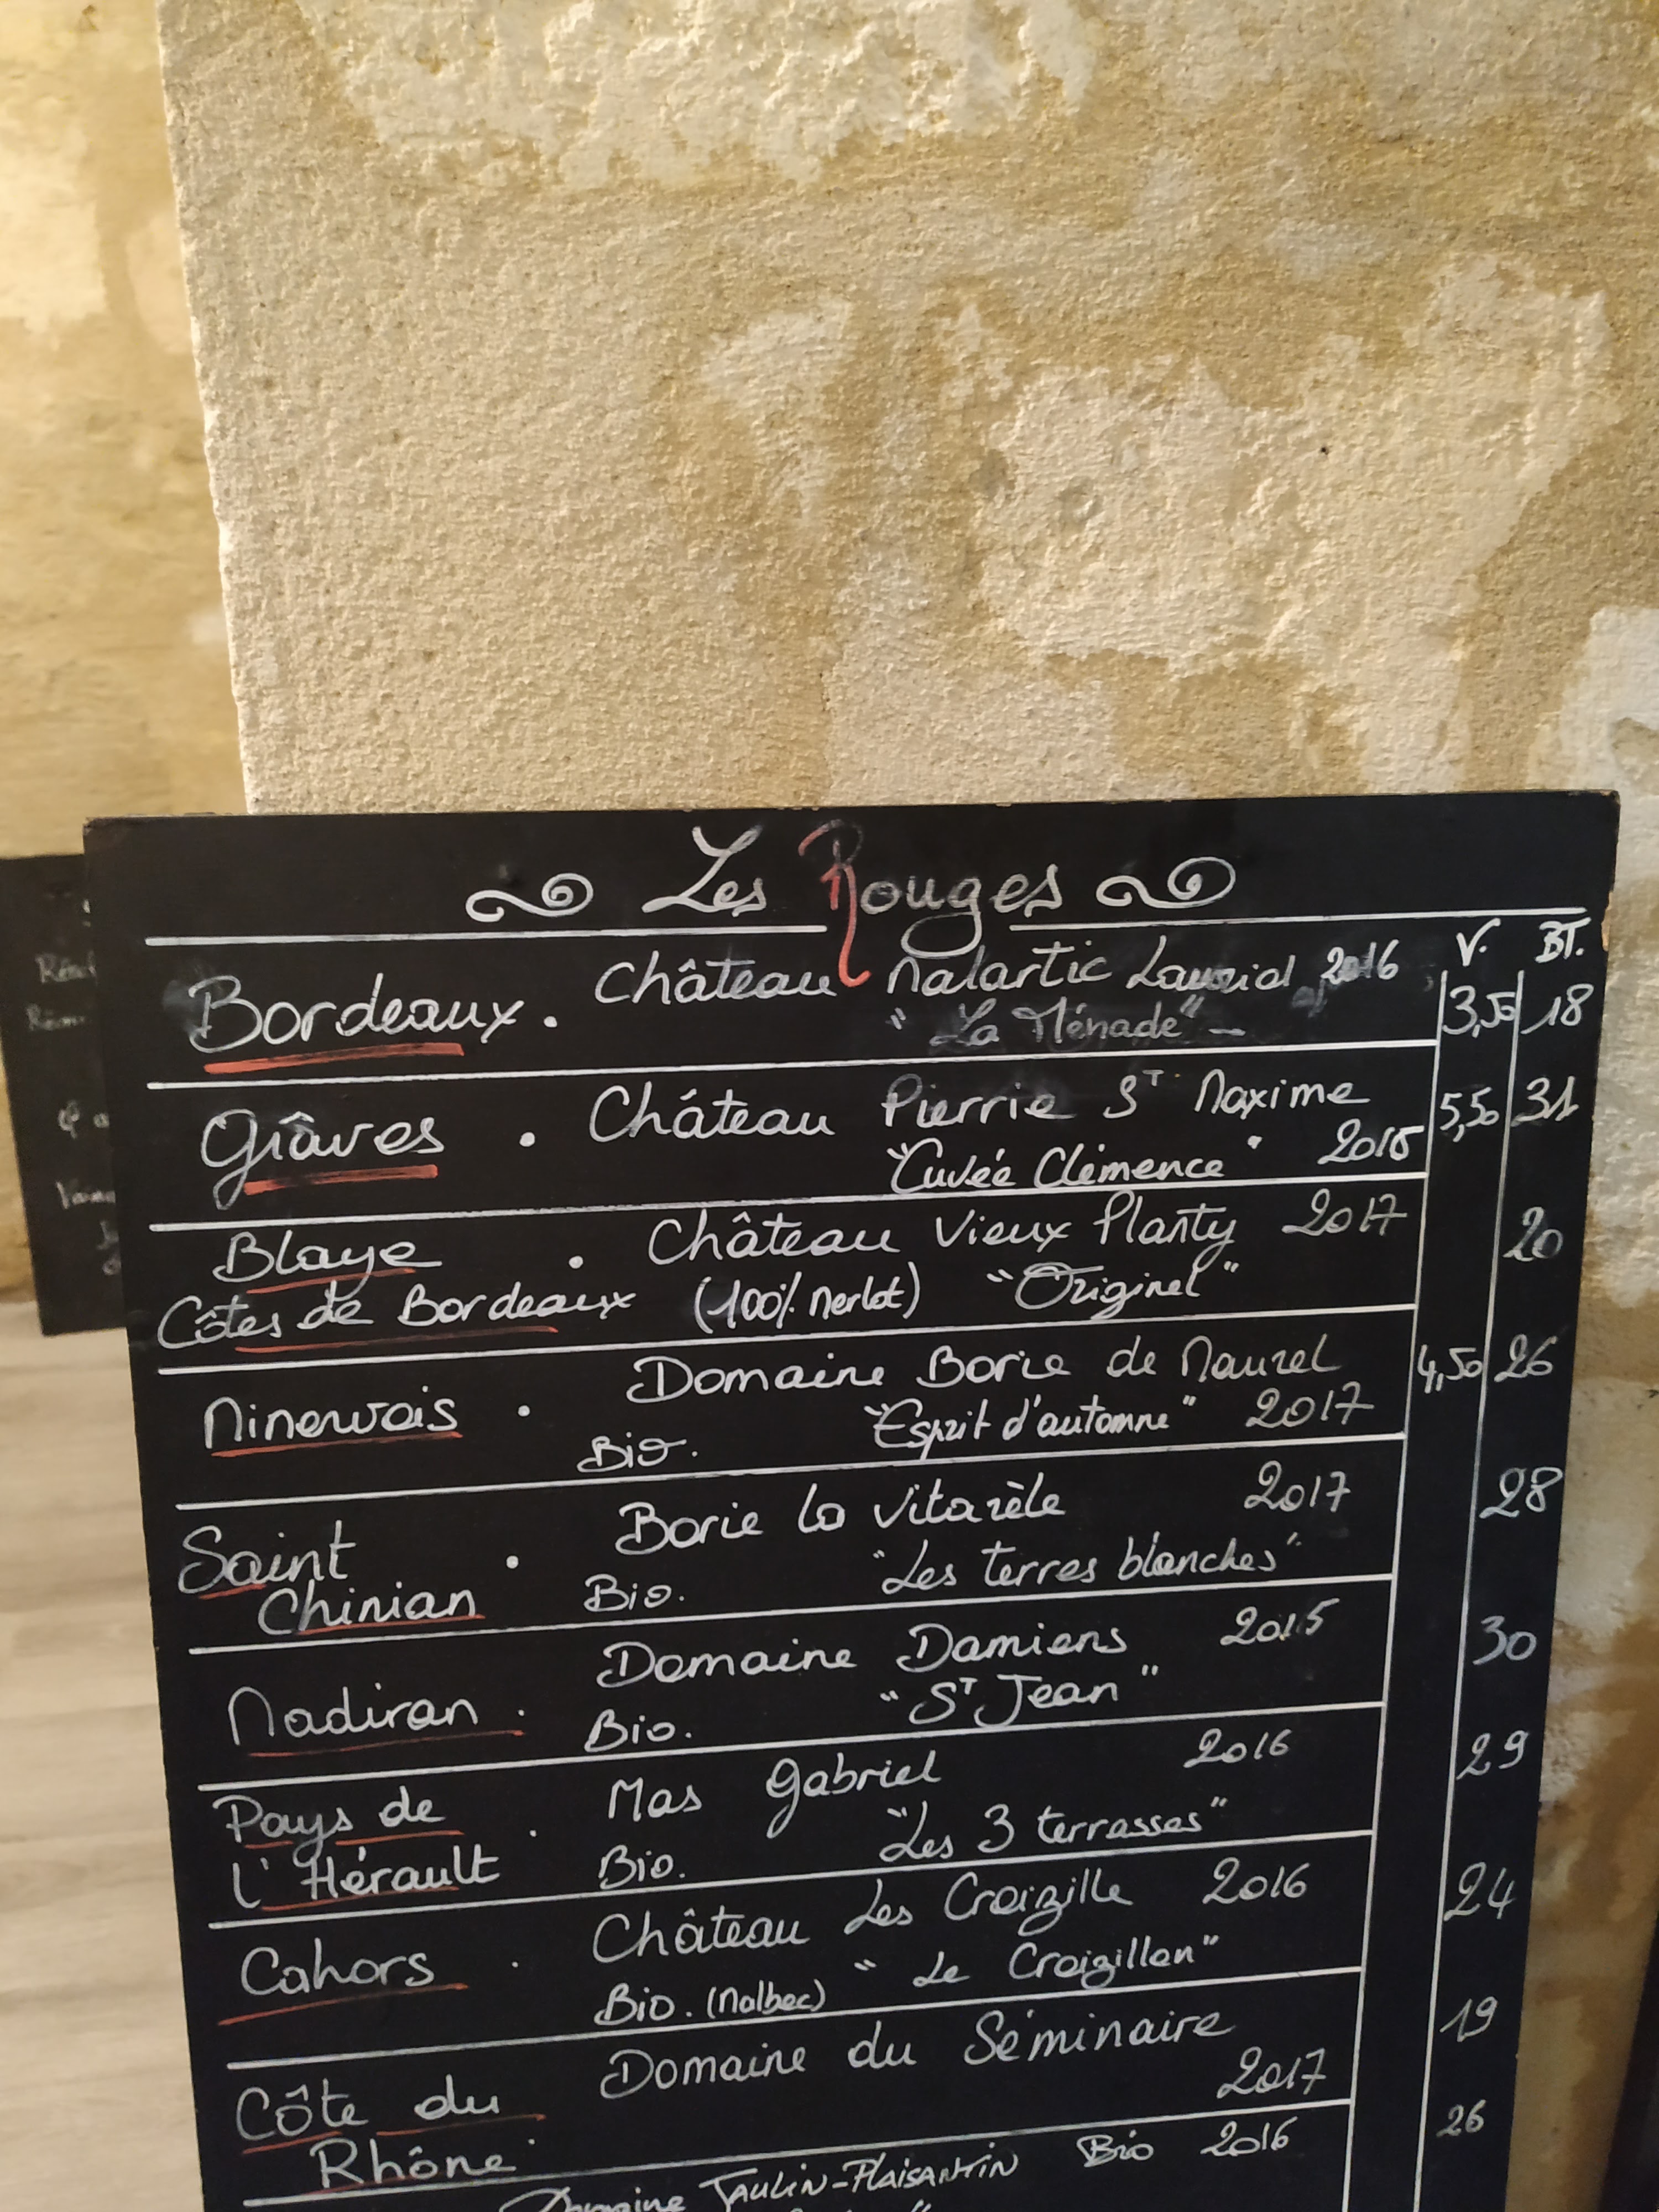 Les Rouges
V. BT.
Bordeaux. Château Malartic 2016
"La Ménade" 3,50 18
Grâves . Château Pierrie St Maxime 5,50 31
"Cuvée Clémence" 2015
Blaye . Château Vieux Planty 2017 20
Côtes de Bordeaux (100% Merlot) "Originel"
Minervois . Domaine Borie de Maurel 4,50 26
Bio. "Esprit d'automne" 2017
Saint . Borie la Vitarèle 2017 28
Chinian Bio. "Les terres blanches"
Madiran . Domaine Damiens 2015 30
Bio. "St Jean"
Pays de . Mas Gabriel 2016 29
l'Hérault Bio. "Les 3 terrasses"
Cahors . Château Les Croizille 2016 24
Bio. (Malbec) "Le Croizillon"
Côte du Domaine du Séminaire 19
Rhône. 2017
Domaine TAULIN-PLAISANTIN Bio 2016 26